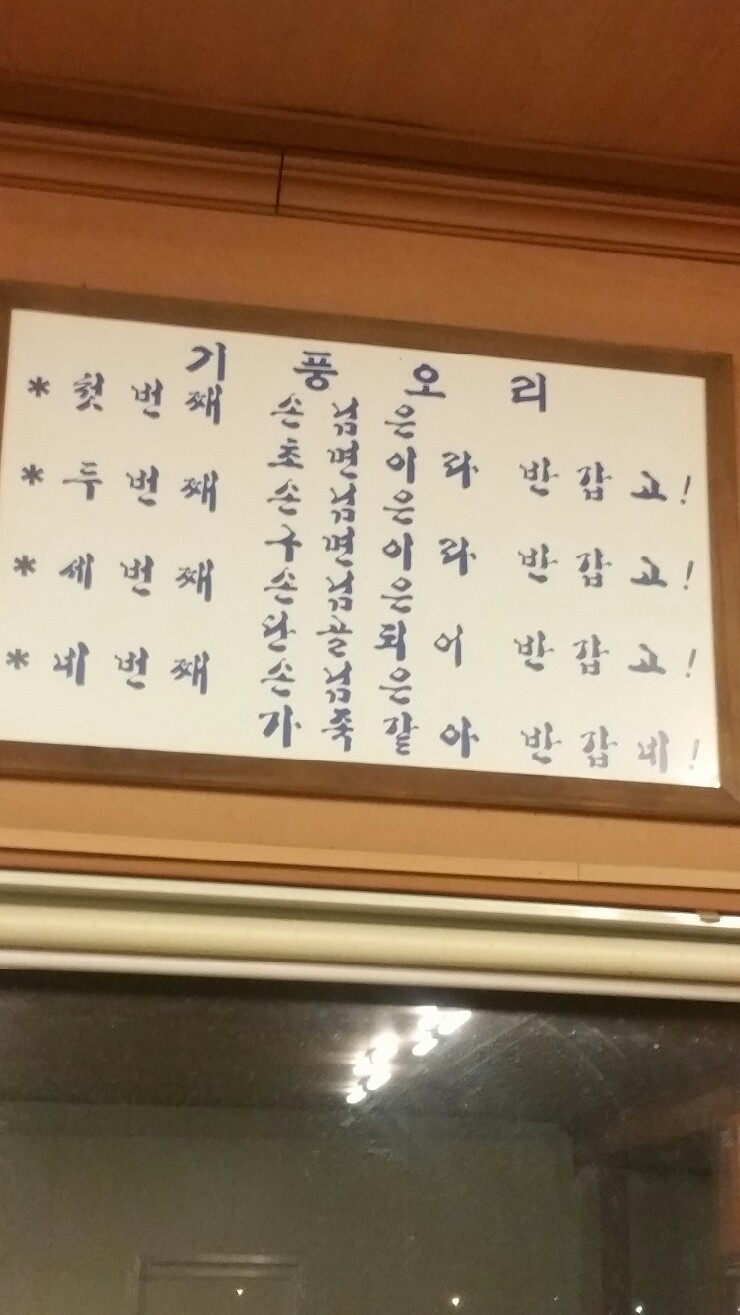 기 풍 오 리
* 첫 번 째 손 님 은
초 면 이 라 반 갑 고!
* 두 번 째 손 님 은
구 면 이 라 반 갑 고!
* 세 번 째 손 님 은
단 골 되 어 반 갑 고!
* 네 번 째 손 님 은
가 족 같 아 반 갑 네!